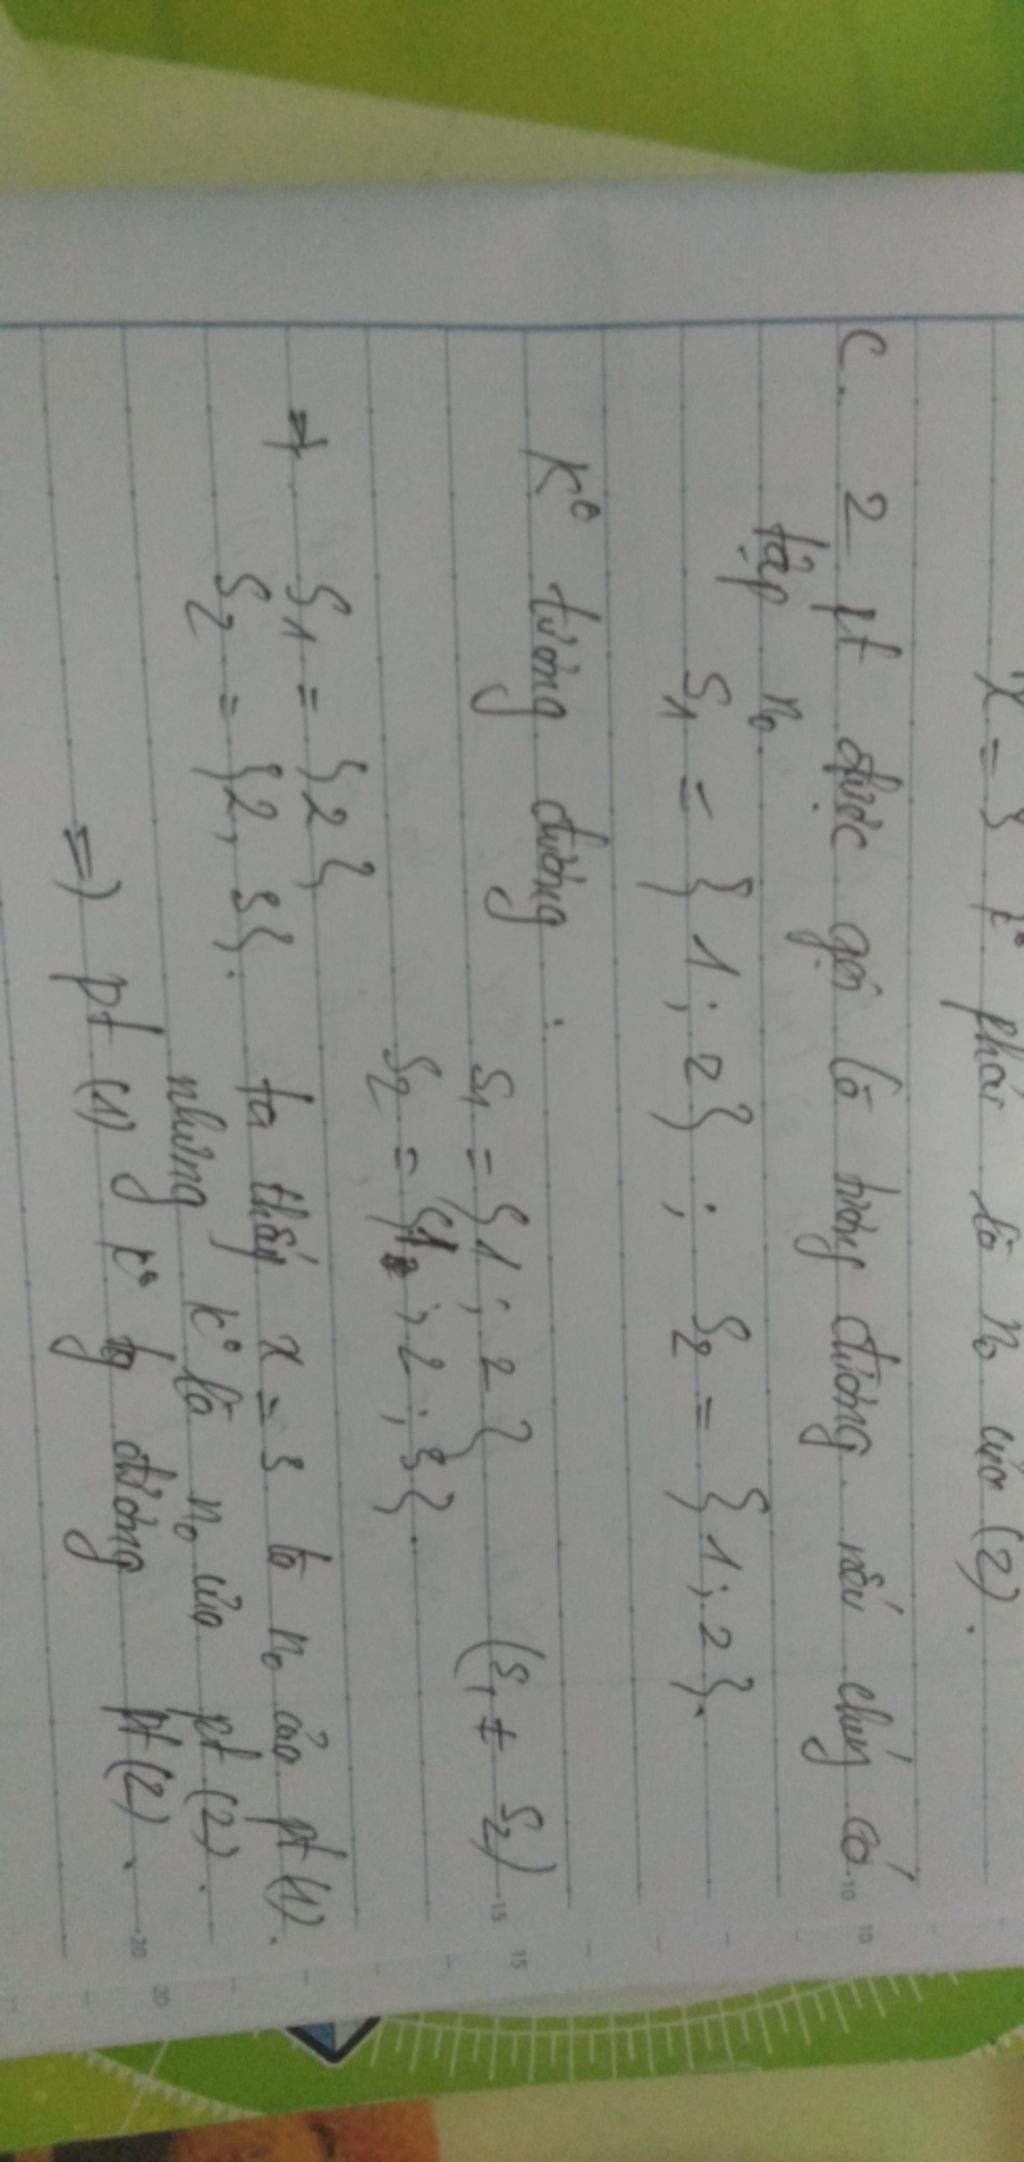 x = 3 k° phải là n₀ của (2).
C. 2 pt được gọi là tương đương nếu chúng có
tập n₀.
S₁ = {1; 2} ; S₂ = {1; 2}.
K° tương đương : S₁ = {1; 2} (S₁ ≠ S₂)
S₂ = {1; 2; 3}.
≠ S₁ = {2}
S₂ = {2, 3}. ta thấy x = 3 là n₀ của pt (1).
nhưng k° là n₀ của pt (2).
=) pt (1) k° tg đương pt (2).
10
10
15
15
20
20